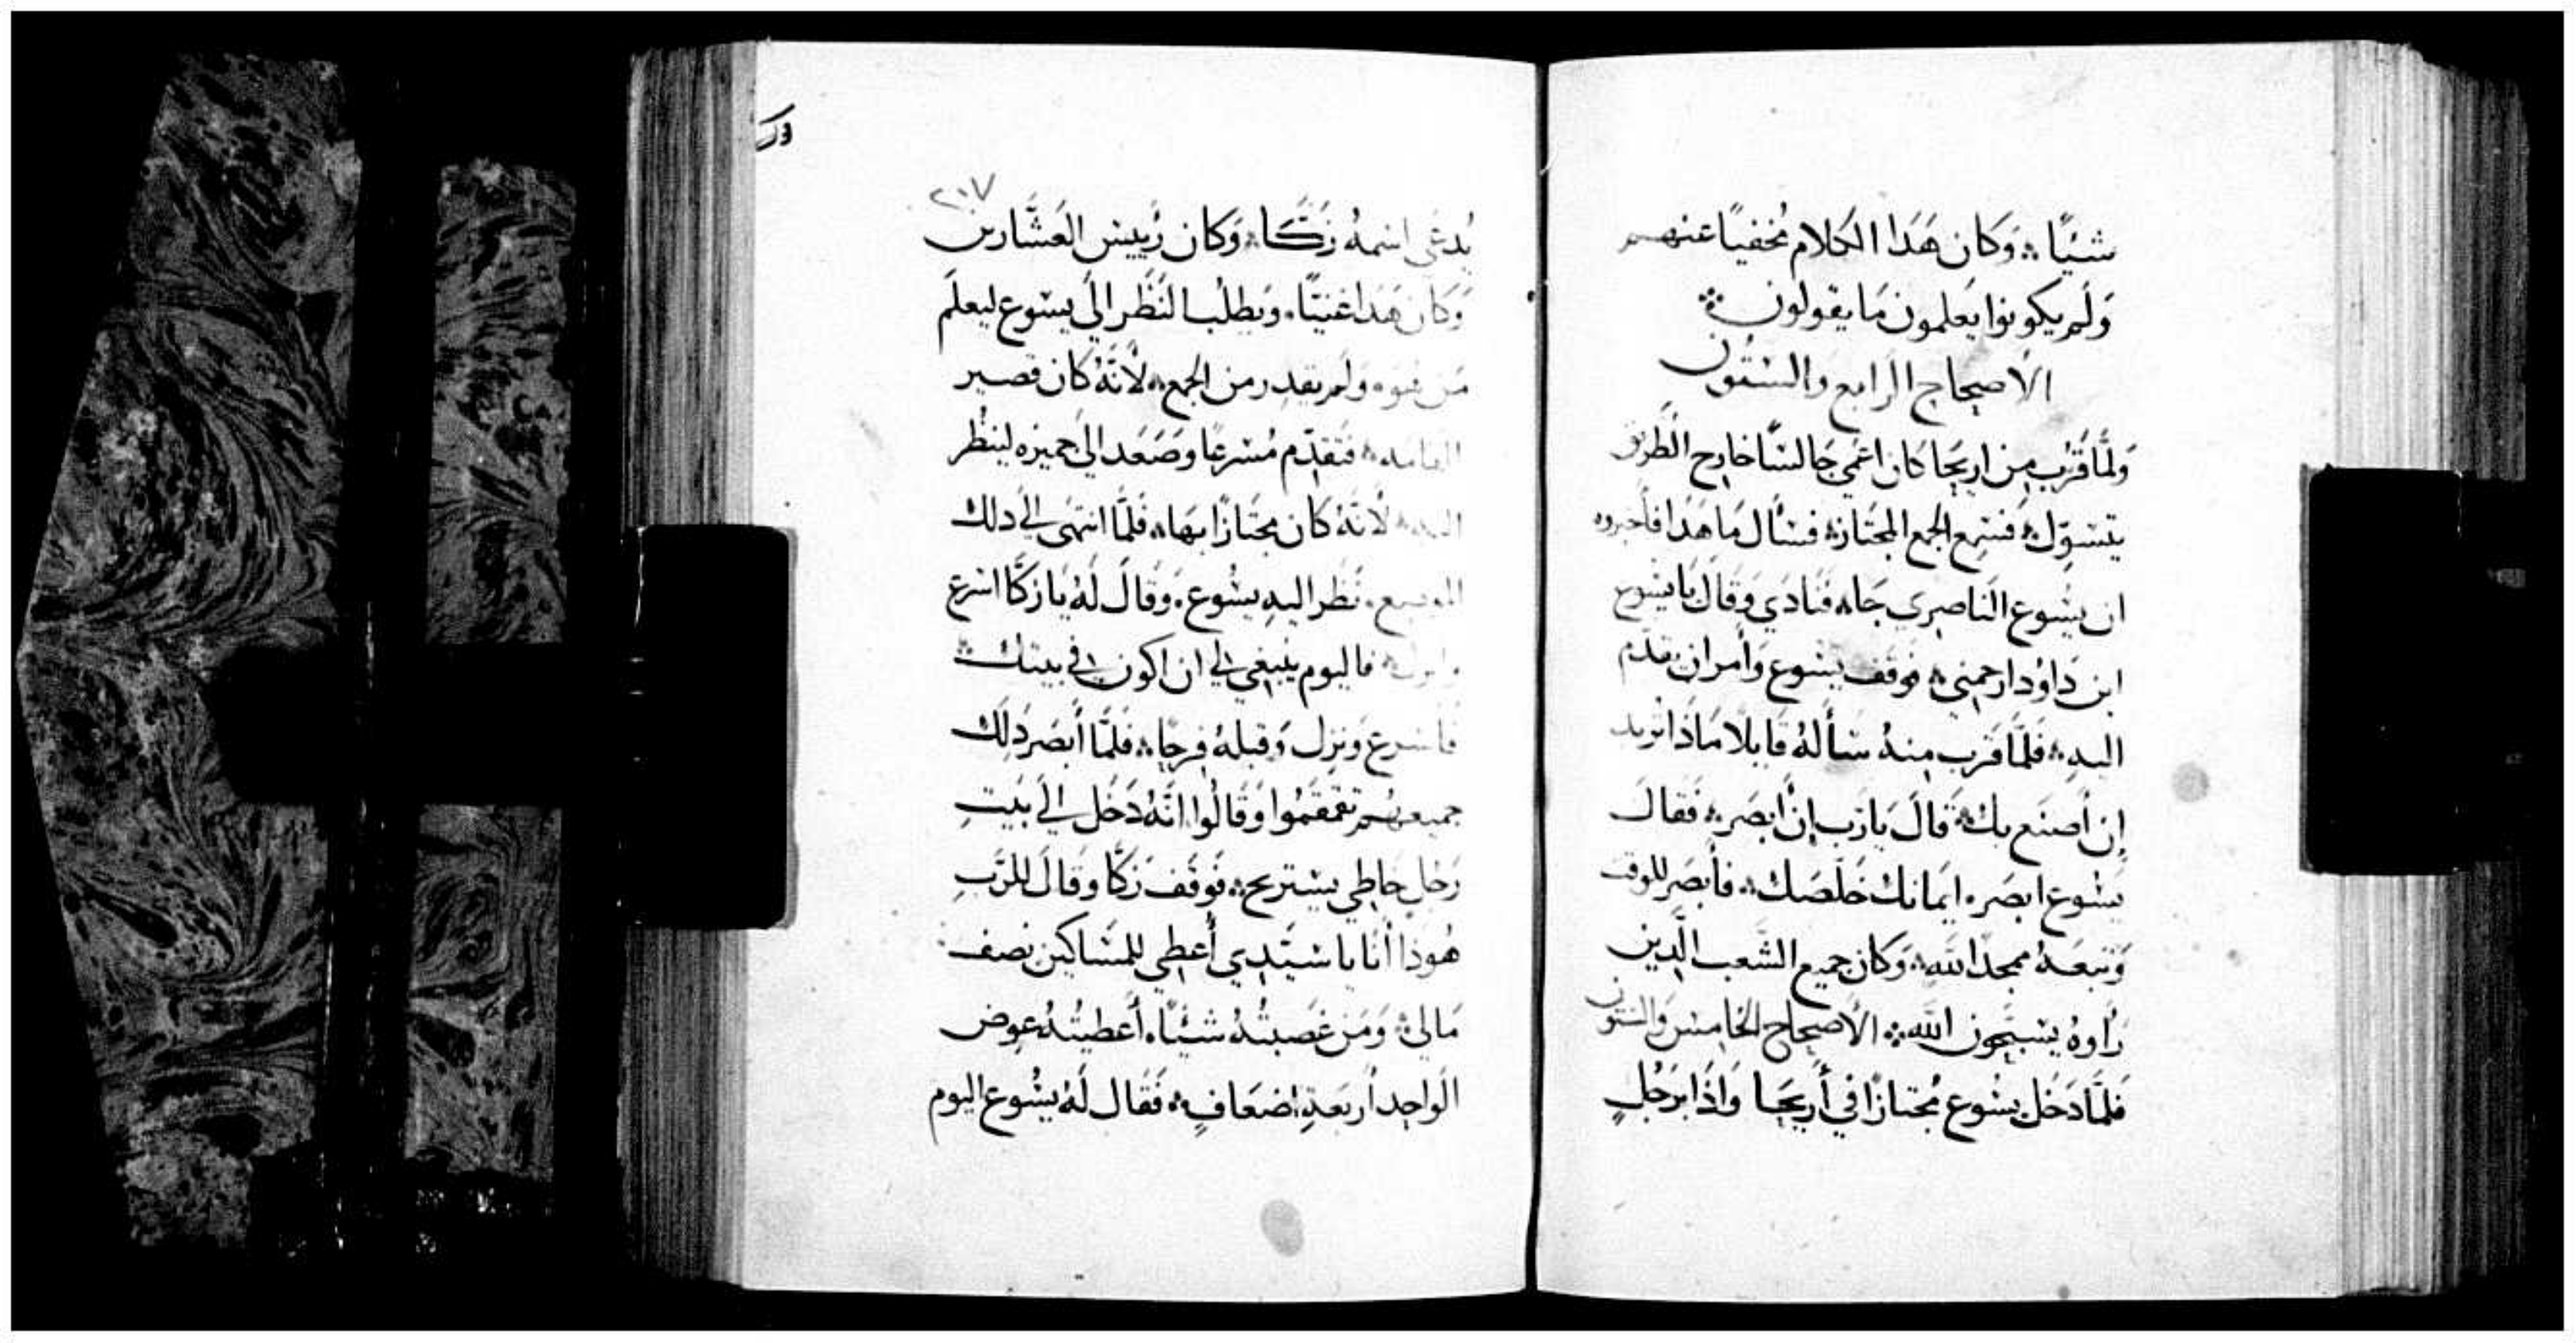 شيًا ؞ وَكان هَذا الكلام مُخفيًا عنهم
وَلَم يكونوا يَعلمون مَا يقولون ؞
الاصحاح الرابع والستون
وَلمَّا قَرُب مِن اريحَا كان اعمَي جَالسًا خارج الطريق
يتسوّل ؞ فسَمِع الجمع المجتاز ؞ فسأل مَا هَذا فأخبروه
ان يسُوع الناصري جَاه فنَادَي وَقالَ يا يسُوع
ابن دَاوُد ارحمني ؞ فوقف يسُوع وَأمر ان يقدم
اليهِ ؞ فلمَّا قَرب مِنهُ سَألهُ قايلًا مَاذا تريد
اِن اَصنَع بك ؞ قالَ يا رَب اِن اَبصَر ؞ فقالَ
يسُوع ابصَر ، ايمانك خلصَك ؞ فأبصَر للوقت
وَتبعَهُ ممجدًا لله ؞ وَكان جميع الشعب الَّذين
رَاوهُ يسَبّحون الله ؞ الاصحاح الخامس والستون
فلمَّا دَخل يسُوع مُجتازًا في أريحَا وَاذا برَجُلٍ
ورك
٢٠٧
يُدعَى اسمهُ زَكَّا ؞ وَكان رَييس العَشَّارين
وَكان هَذا غنيًّا ، وَيطلب النَظر الَى يسوع ليعلَم
مَن هُوَ ، وَلم يقدِر من الجمع ؞ لأنَّهُ كان قصير
القامه ؞ فتقدّم مُسرعًا وصَعَد الَى جميزه لينظُر
اليه ؞ لأنَّهُ كان مجتَازًا بهَا ؞ فلمَّا انتهَى الي دلك
الموضع ، نَظر اليهِ يسُوع ، وَقالَ لَهُ يا زكَّا اسرع
وانزل ؞ فاليوم ينبغي لي ان اكون في بيتك ؞
فأسرع وَنزل وَقبلهُ فرحًا ؞ فلمَّا أبصَر دَلِك
جميعهُم تقمقمُوا وَقالُوا انَّهُ دَخل الي بَيتِ
رَجلٍ خاطي يستريح ؞ فوَقَف زكَّا وقالَ للرَّبِ
هُوَذا أنا يا سَيّدي أُعطي للمسَاكين نصف
مَالي ؞ وَمَن غَصبتُهُ شيًّا ، أعطيتُهُ عِوض
الوَاحِد اربَعةِ اضعَافٍ ؞ فقال لهُ يسُوع اليوم